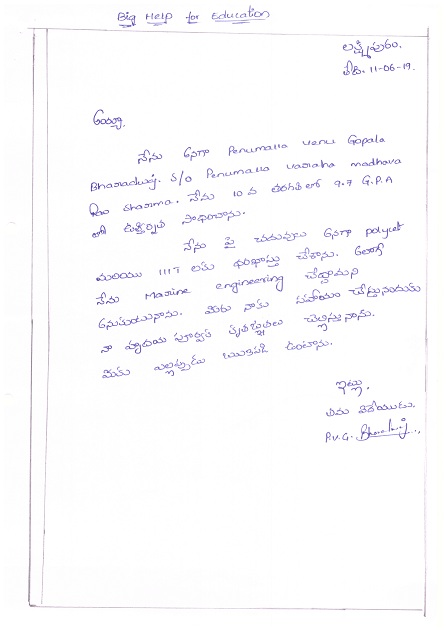 Big Help for Education
లక్ష్మీపురం.
తేది. 11-06-19.
అయ్యా,
నేను అనగా Penumalla venu Gopala
Bharadwaj. S/o Penumalla varaha madhava
Rao sharma. నేను 10 వ తరగతిలో 9.7 G.P.A
తో ఉత్తీర్ణత సాధించాను.
నేను పై చదువులు అనగా polycet
మరియు IIIT లకు ధరఖాస్తు చేశాను. అలాగే
నేను Marine engineering చేద్దామని
అనుకుంటున్నాను. మీరు నాకు సహాయం చేస్తున్నందుకు
నా హృదయ పూర్వక కృతజ్ఞతలు చెల్లిస్తున్నాను.
మీకు ఎల్లప్పుడు ఋణపడి ఉంటాను.
ఇట్లు.
తమ విధేయుడు.
P.V.G. Bharadwaj